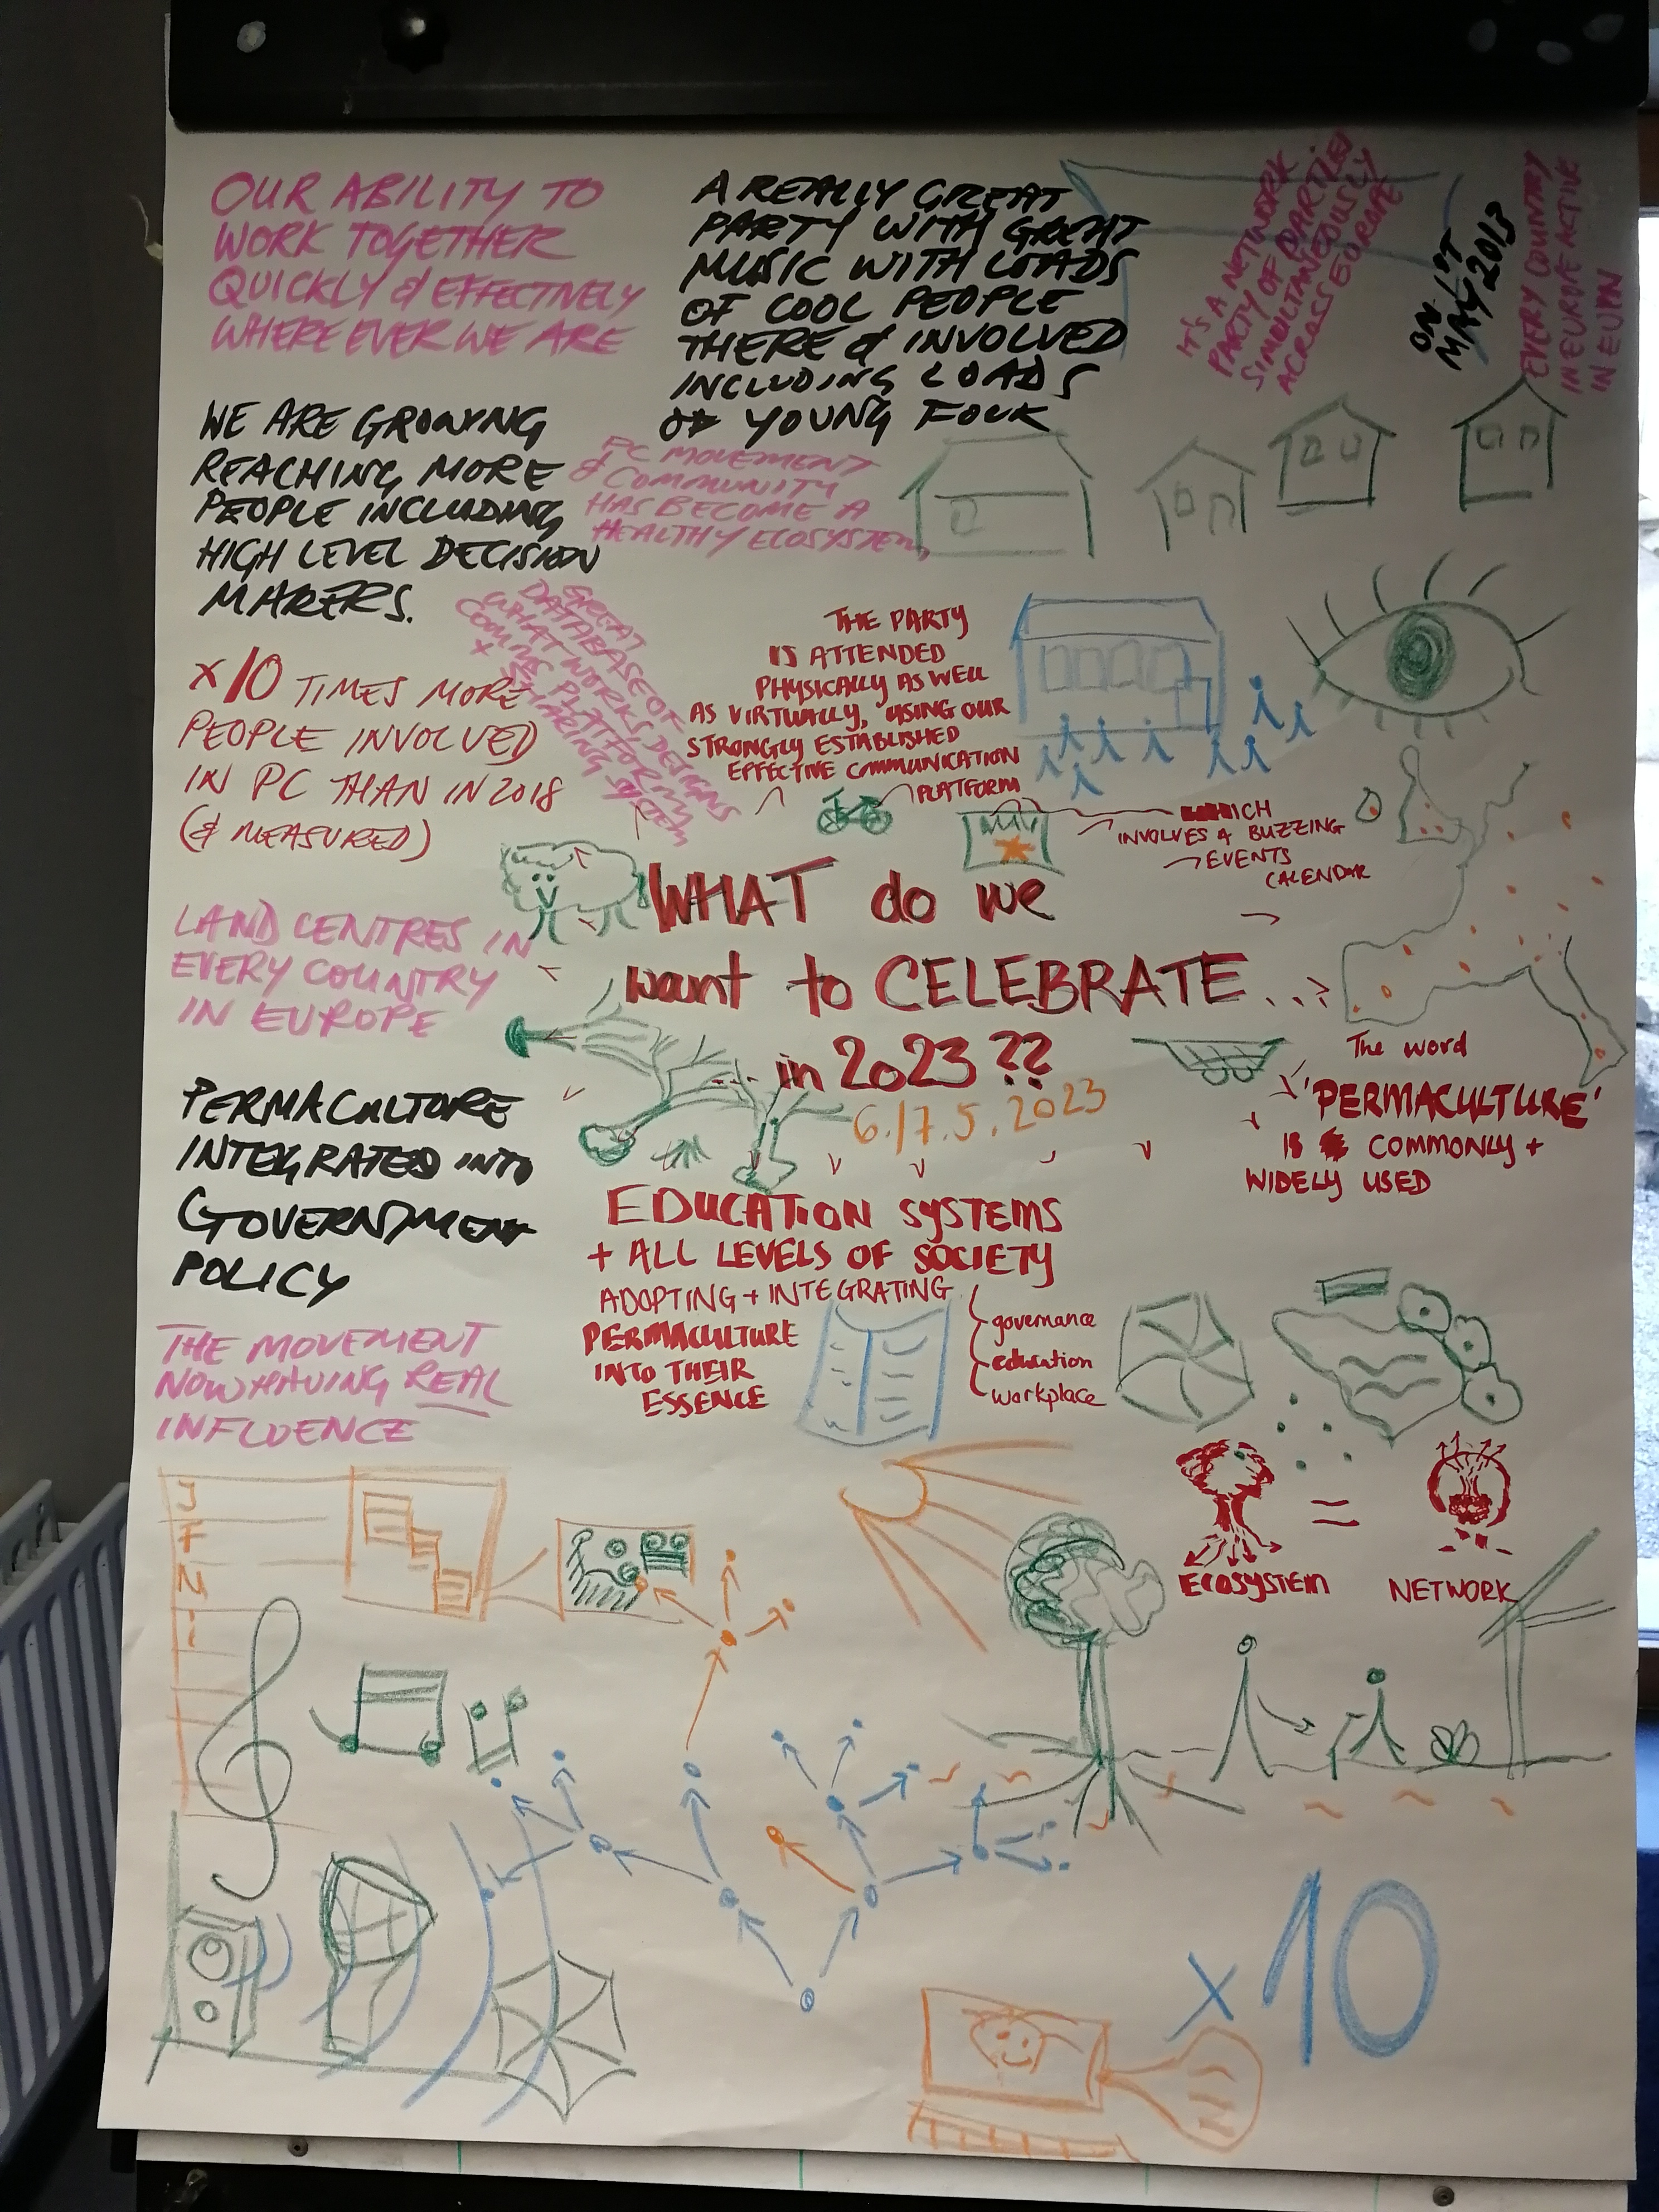 OUR ABILITY TO
WORK TOGETHER
QUICKLY & EFFECTIVELY
WHERE EVER WE ARE
A REALLY GREAT
PARTY WITH GREAT
MUSIC WITH LOADS
OF COOL PEOPLE
THERE & INVOLVED
INCLUDING LOADS
OF YOUNG FOLK
IT'S A NETWORK
PARTY OF PARTIES
SIMULTANEOUSLY
ACROSS EUROPE
ON 1ST
MAY 2013
EVERY COUNTRY
IN EUROPE ACTIVE
IN EUPN
WE ARE GROWING
REACHING MORE
PEOPLE INCLUDING
HIGH LEVEL DECISION
MAKERS.
PC MOVEMENT
& COMMUNITY
HAS BECOME A
HEALTHY ECOSYSTEM
GREAT
DATABASE OF
WHAT WORKS, DESIGNS
COMMS PLATFORM
+ SHARING SYSTEM
x10 TIMES MORE
PEOPLE INVOLVED
IN PC THAN IN 2018
(& MEASURED)
THE PARTY
IS ATTENDED
PHYSICALLY AS WELL
AS VIRTUALLY, USING OUR
STRONGLY ESTABLISHED
EFFECTIVE COMMUNICATION
PLATFORM
WHICH
INVOLVES A BUZZING
EVENTS
CALENDAR
WHAT do we
want to CELEBRATE...
in 2023 ??
6./7.5.2023
LAND CENTRES IN
EVERY COUNTRY
IN EUROPE
The word
'PERMACULTURE'
IS COMMONLY +
WIDELY USED
PERMACULTURE
INTEGRATED INTO
GOVERNMENT
POLICY
EDUCATION SYSTEMS
+ ALL LEVELS OF SOCIETY
ADOPTING + INTEGRATING
PERMACULTURE
INTO THEIR
ESSENCE
governance
education
workplace
THE MOVEMENT
NOW HAVING REAL
INFLUENCE
ECOSYSTEM
=
NETWORK
x10